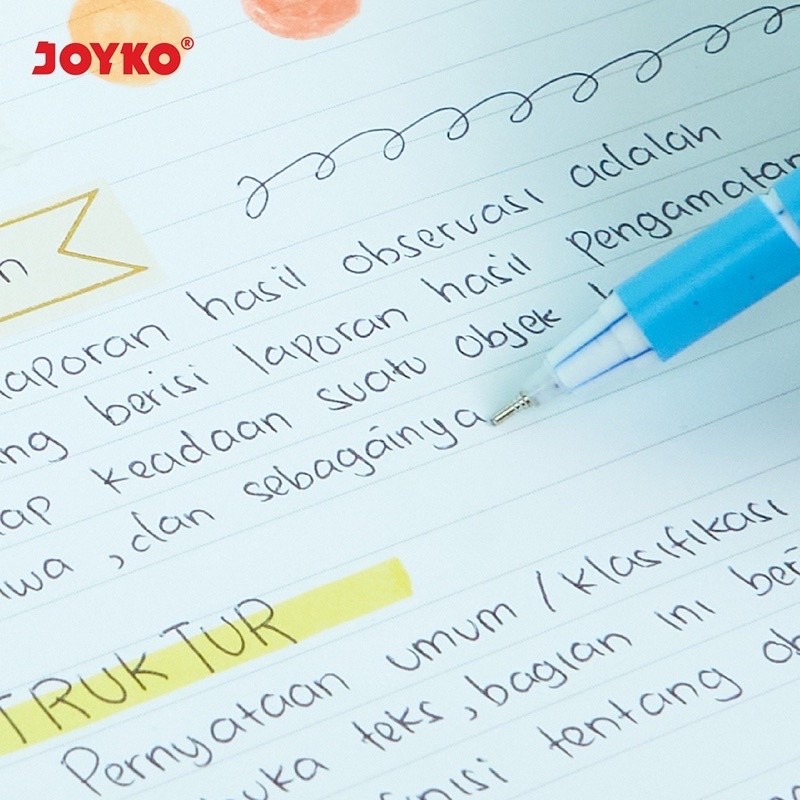 JOYKO®
n
laporan hasil observasi adalah
ng berisi laporan hasil pengamatan
ap keadaan suatu objek
iwa, dan sebagainya
TRUKTUR
Pernyataan umum / klasifikasi
buka teks, bagian ini beri
inisi tentang ob